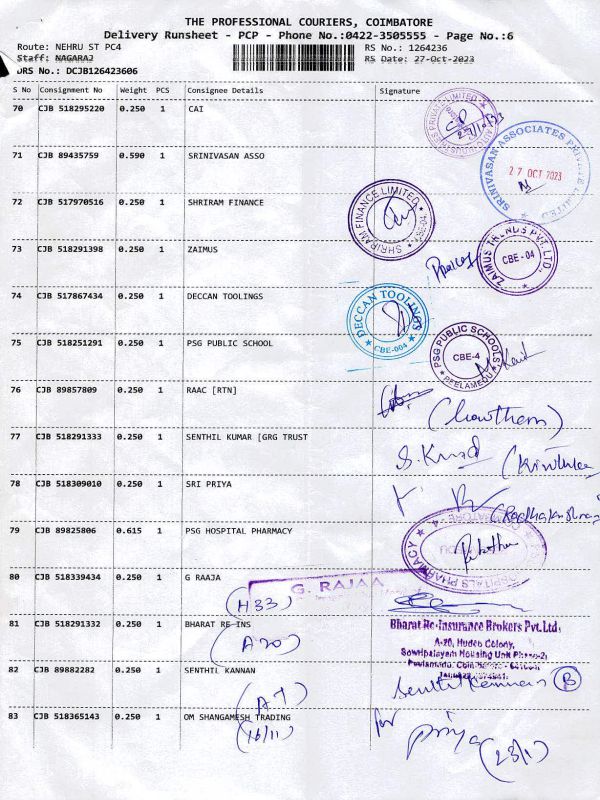 THE PROFESSIONAL COURIERS, COIMBATORE
Delivery Runsheet - PCP - Phone No.:0422-3505555 - Page No.:6
Route: NEHRU ST PC4
RS No.: 1264236
Staff: NAGARAJ
RS Date: 27-Oct-2023
DRS No.: DCJB126423606
S No Consignment No Weight PCS Consignee Details Signature
70 CJB 518295220 0.250 1 CAI
PRIVATE LIMITED
71 CJB 89435759 0.590 1 SRINIVASAN ASSO
SRINIVASAN ASSOCIATES PRIVATE LIMITED
27 OCT 2023
72 CJB 517970516 0.250 1 SHRIRAM FINANCE
SHRIRAM FINANCE LIMITED
73 CJB 518291398 0.250 1 ZAIMUS
ZAIMUS TRENDS PVT. LTD.
CBE-04
74 CJB 517867434 0.250 1 DECCAN TOOLINGS
DECCAN TOOLINGS
CBE-004
75 CJB 518251291 0.250 1 PSG PUBLIC SCHOOL
PSG PUBLIC SCHOOLS
CBE-4
PEELAMEDU
76 CJB 89857809 0.250 1 RAAC [RTN]
(Gowtham)
77 CJB 518291333 0.250 1 SENTHIL KUMAR [GRG TRUST
78 CJB 518309010 0.250 1 SRI PRIYA
(Radhakrishnan)
79 CJB 89825806 0.615 1 PSG HOSPITAL PHARMACY
HOSPITALS PHARMACY
80 CJB 518339434 0.250 1 G RAAJA
G. RAJAA
(H33)
81 CJB 518291332 0.250 1 BHARAT RE-INS
(A20)
Bharat Re-Insurance Brokers Pvt.Ltd.
A-20, Hudco Colony,
Sowripalayam Housing Unit Phase-2,
82 CJB 89882282 0.250 1 SENTHIL KANNAN
Senthil Kannan B
(A7)
83 CJB 518365143 0.250 1 OM SHANGAMESH TRADING
(16/11)
for Priya (23/1)